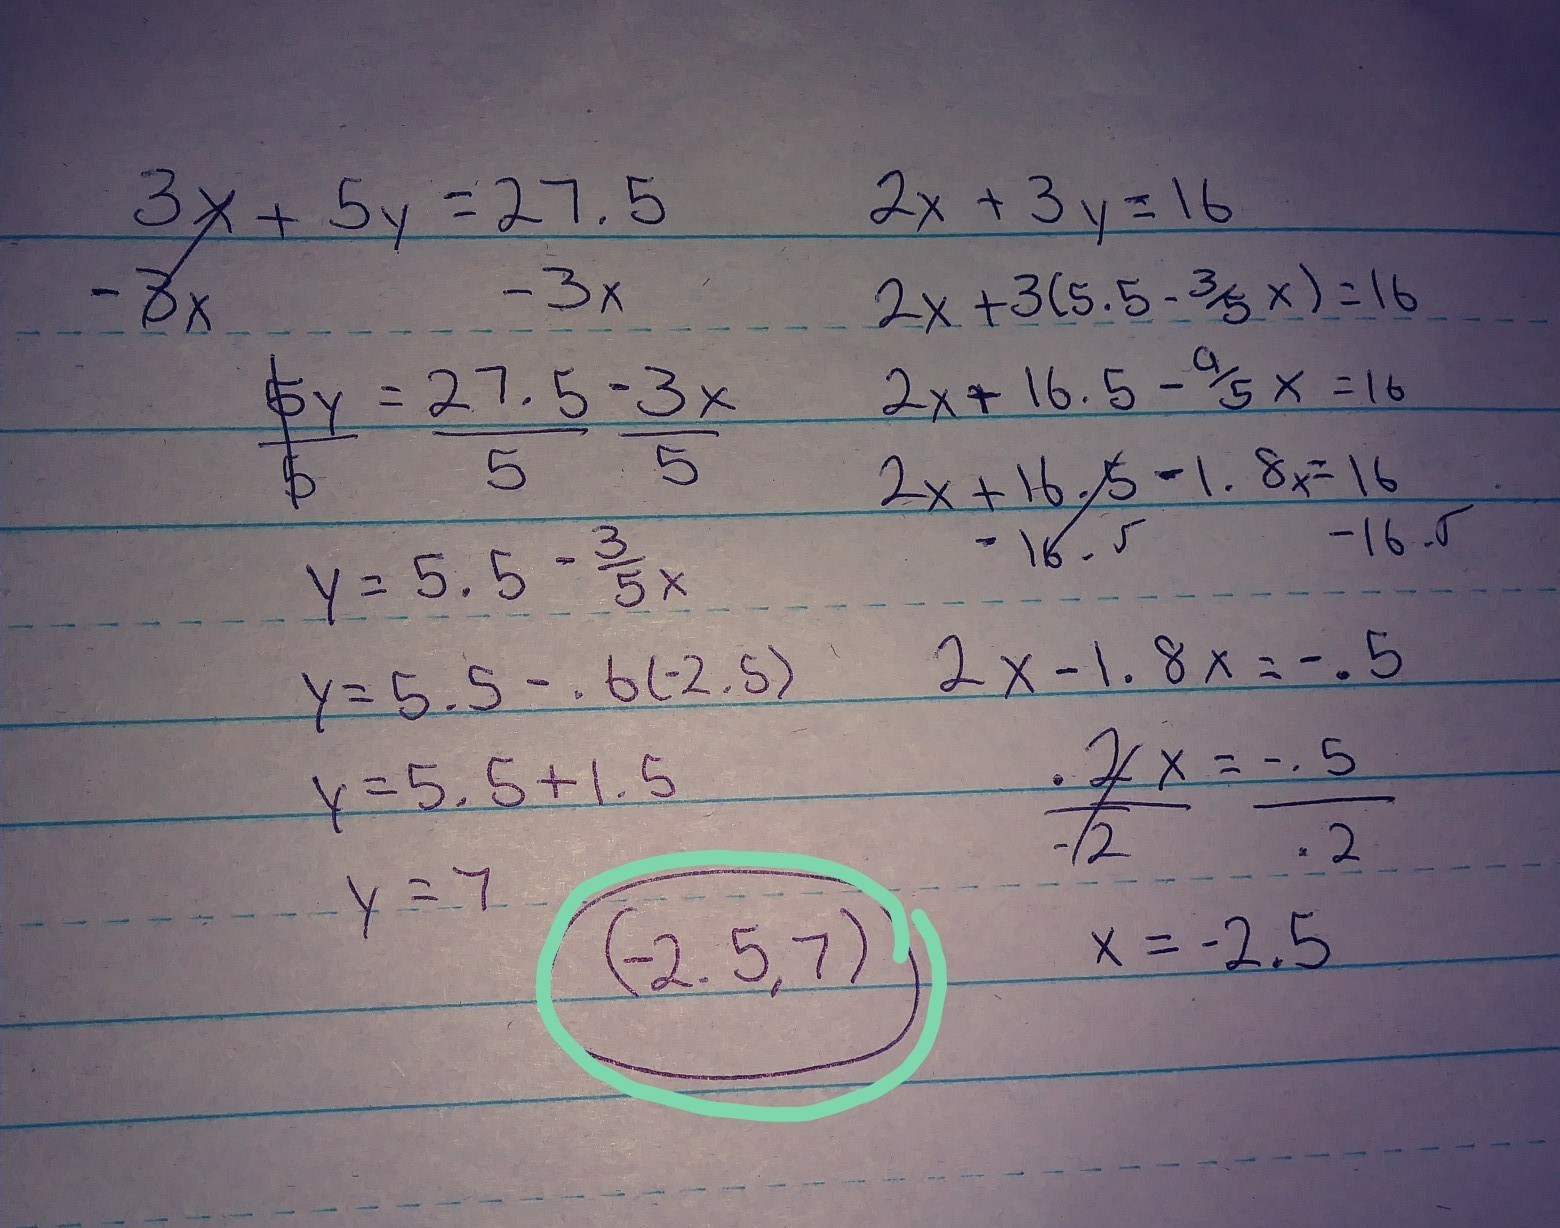 3x + 5y = 27.5
-3x -3x
5y = 27.5 - 3x
5 5 5
y = 5.5 - 3/5 x
y = 5.5 - .6(-2.5)
y = 5.5 + 1.5
y = 7
(-2.5, 7)
2x + 3y = 16
2x + 3(5.5 - 3/5 x) = 16
2x + 16.5 - 9/5 x = 16
2x + 16.5 - 1.8x = 16
- 16.5 -16.5
2x - 1.8x = -.5
.2x = -.5
.2 .2
x = -2.5